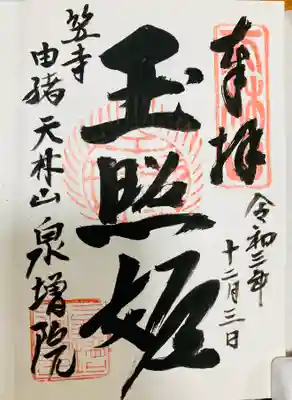 奉拝
令和三年
十二月三日
玉照姫
笠寺
由緒 天林山 泉増院